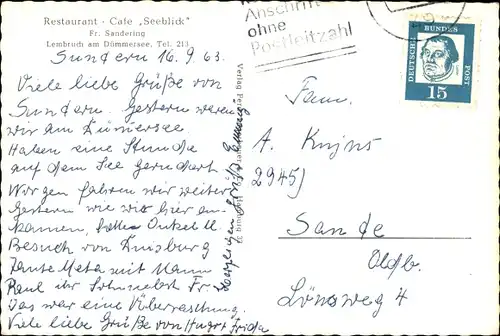 Restaurant - Café „Seeblick"
Fr. Sandering
Lembruch am Dümmersee, Tel. 213
Sundern 16.9.63.
Viele liebe Grüße von
Sundern. Gestern waren
wir am Dümersee
Haben eine Stunde
auf dem See gerudert.
Morgen fahren wir weiter
Gestern wie wir hier an-
kamen, hatte Onkel
Besuch von Duisburg
Tante Meta mit Mann
Paul ihr
Das war eine Überraschung.
Viele liebe Grüße von Frida
Herzlichen Gruß
Verlag
Anschrift
ohne
Postleitzahl
DEUTSCHE
BUNDES
POST
15
Fam.
A.
2945)
Sande
Oldb.
Lönsweg 4